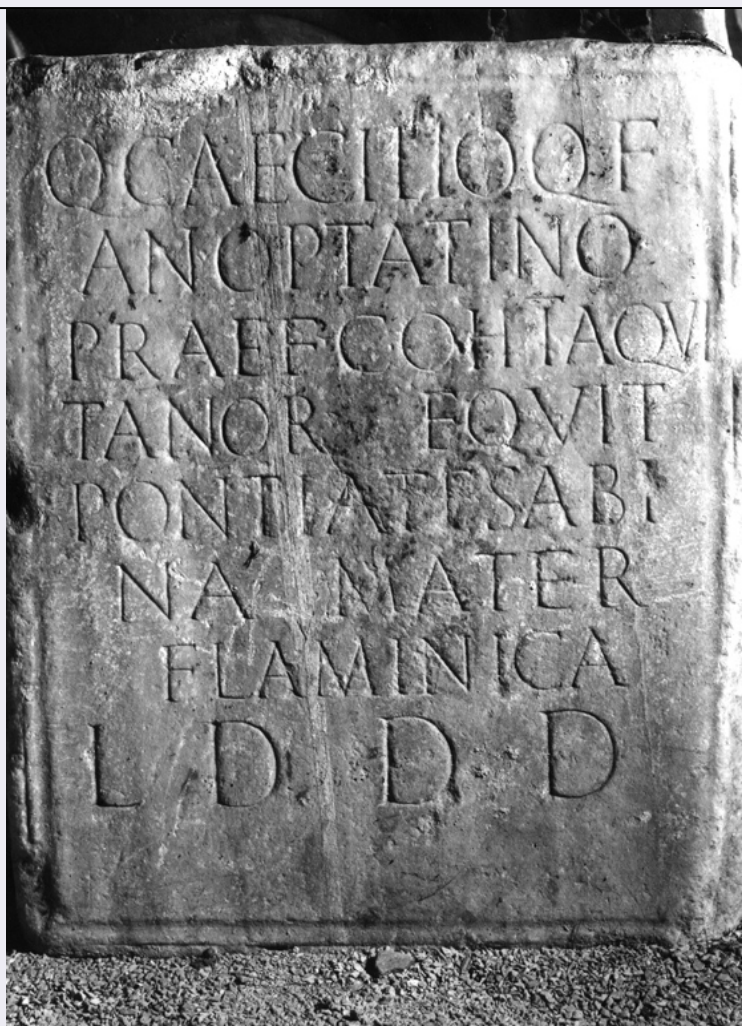 Q CAECILIO Q F
AN OPTATINO
PRAEF COH Ī AQVI
TANOR EQVIT
PONTIA T F SABI
NA MATER
FLAMINICA
L D D D